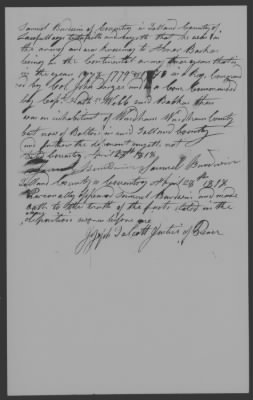 Samuel Burdwin of Coventry in Tolland County of
Lawfull age testefieth and sayeth that he was in
the army and was knowing to Abner Backus
being in the Continental army three years that is
in the years 1778 1779 & 1780 in a Reg. Command
ed by Col. John Durgee and a Com. Commanded
by Capt. Nath. Webb said Backus then
was an inhabitant of Windham Windham County
but now of Bolton in said Tolland County
and further the deponent sayeth not
April 28th 1818
Samuel Burdwin
Tolland County ss Coventry April 28th 1818
Personally appeared Samuel Burdwin and made
oath to the truth of the facts stated in the
deposition before me
Joseph Talcott Justice of Peace